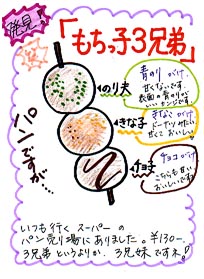 発見
「もちっ子3兄弟」
のり夫
青のりがけ
甘くないです。
表面の青のりが
いいカンジです
パンですが…
きな子
きなこがけ
ドーナツみたい。
甘くておいしい。
チョ夫
チョコがけ
こちらも甘い
おいしいです
いつも行くスーパーの
パン売り場にありました。¥130-。
3兄弟というよりか、3兄妹ですネ!